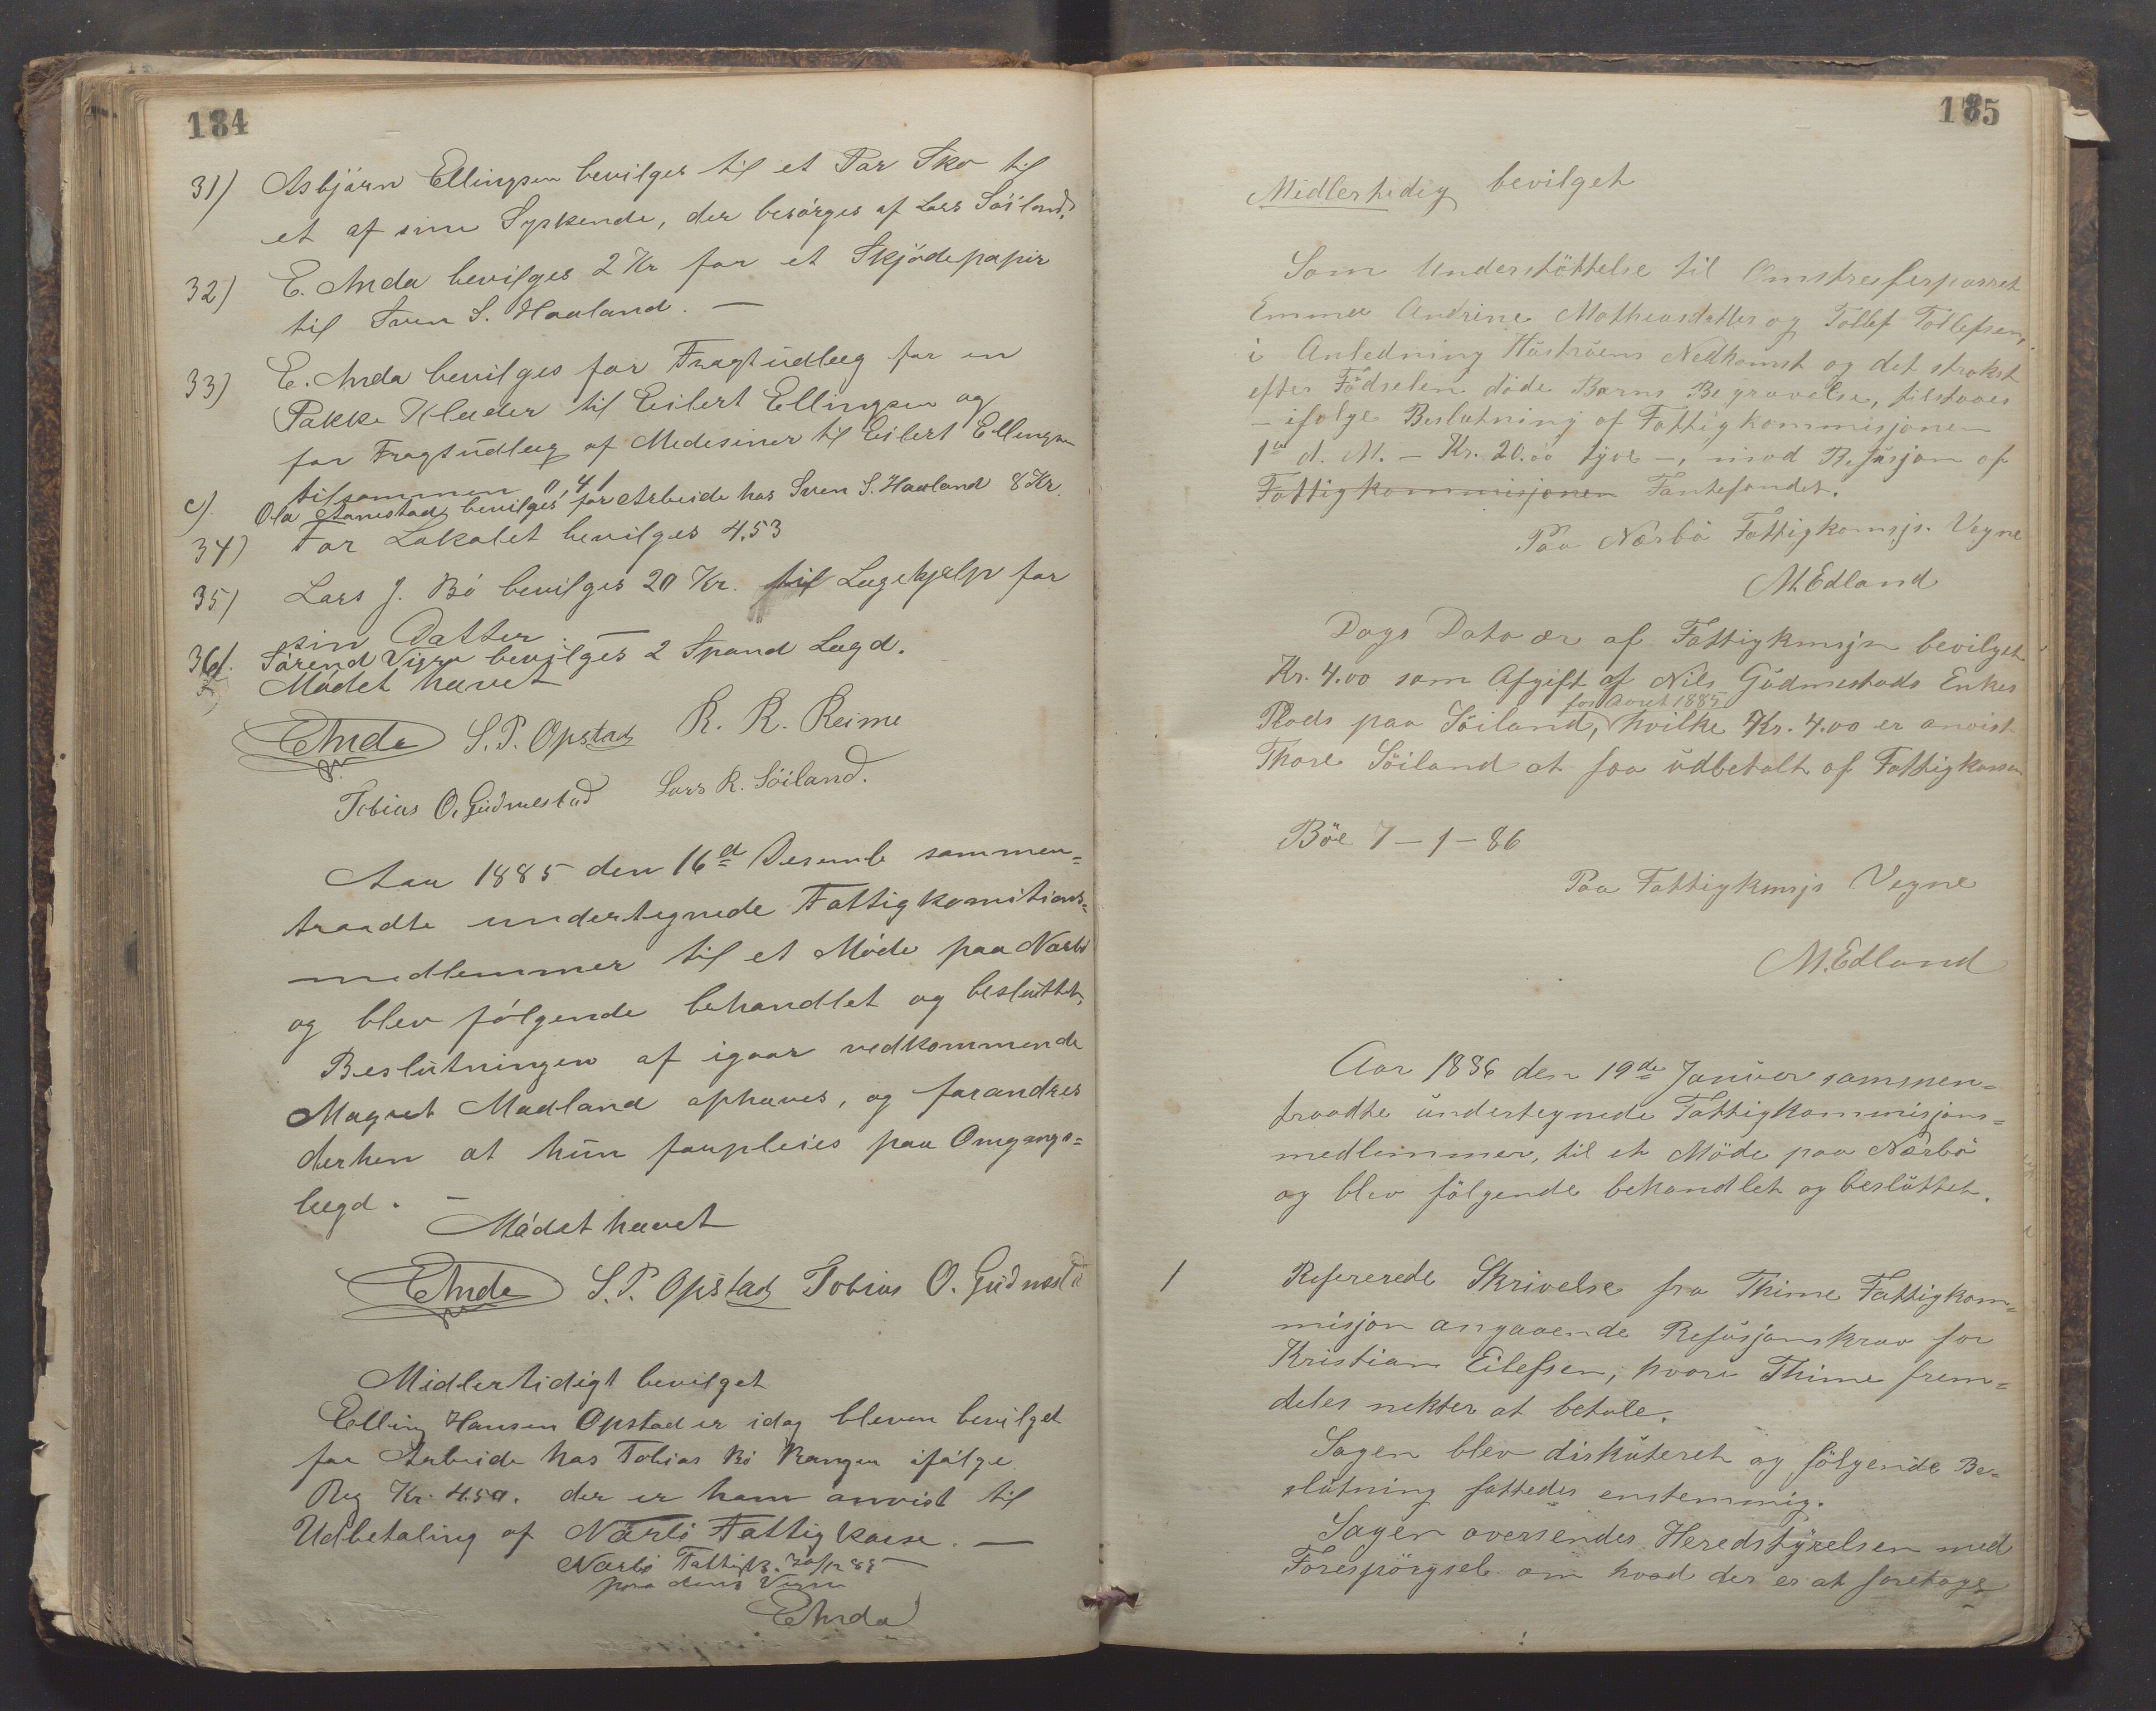 184
31) Asbjørn Ellingsen bevilges til et Par Sko til
et af sine Syskende, der besørges af Lars Söiland.
32) E. Anda bevilges 2 Kr for et Skjödepapir
til Sven S. Haaland. —
33) E. Anda bevilges for Fragtüdlæg for en
Pakke Klæder til Eilert Ellingsen og
for Fragtüdlæg af Medesiner til Eilert Ellingsen
tilsammen 0,41
c). Ola Aanestad bevilges for Arbeide hos Sven S. Haaland 8 Kr.
34) For Lokalet bevilges 4.53
35) Lars J. Bö bevilges 20 Kr. til Lægehjælp for
sin Datter. —
36). Sörend Vigre bevilges 2 Spand Lægd.
Mödet hævet
EAnda S. P. Opstad R. R. Reime
Tobias O. Gudmestad Lars R. Söiland.
Aar 1885 den 16d Desemb sammen=
traadte undertegnede Fattigkomitions=
medlemmer til et Möde paa Nærbö
og blev fölgende behandlet og beslüttet.
Beslütningen af igaar vedkommende
Magret Madland ophæves, og forandres
derhen at hün forpleies paa Omgangs=
lægd. —
Mödet hævet
EAnda S. P. Opstad Tobias O. Gudmestad
Midlertidigt bevilget
Elling Hansen Opstad er idag bleven bevilget
for Arbeide hos Tobias Bö Kangen ifölge
Reg Kr. 4.50. der er ham anvist til
Udbetaling af Nærbö Fattigkasse. —
Nærbö Fattigk. 20/12 85
paa dens Vegne
EAnda
185
Midlertidig bevilget
Som Understöttelse til Omstreiferparret
Emma Andrine Mathiasdatter og Tollef Tollefsen,
i Anledning Hüstrüens Nedkomst og det strakst
efter Födselen döde Barns Begravelse, tilstaaes
– ifölge Beslutning af Fattigkommisjonen
1ste d. M. – Kr. 20.00 tyve –, mod Refüsjon af
Fattigkommisjonen Fantefondet.
Paa Nærbö Fattigkomsjs. Vegne
M. Edland
Dags Dato er af Fattigkmsjn bevilget
Kr. 4.00 som Afgift af Nils Güdmestads Enkes
for Aaret 1885
Plads paa Söiland, hvilke Kr. 4.00 er anvist
Thore Söiland at faa üdbetalt af Fattigkassen
Böe 7 – 1 – 86
Paa Fattigkmsjs Vegne
M. Edland
Aar 1886 den 19de Janüar sammen=
traadte ündertegnede Fattigkommisjons=
medlemmer, til et Möde paa Nærbö
og blev fölgende behandlet og beslüttet.
1 Refererede Skrivelse fra Thime Fattigkom=
misjon angaaende Refüsjonskrav for
Kristian Eilefsen, hvori Thime frem=
deles nekter at betale.
Sagen blev disküteret og fölgende Be=
slütning fattedes enstemmig.
Sagen oversendes Heredstyrelsen med
Forespörgsel om hvad der er at foretage